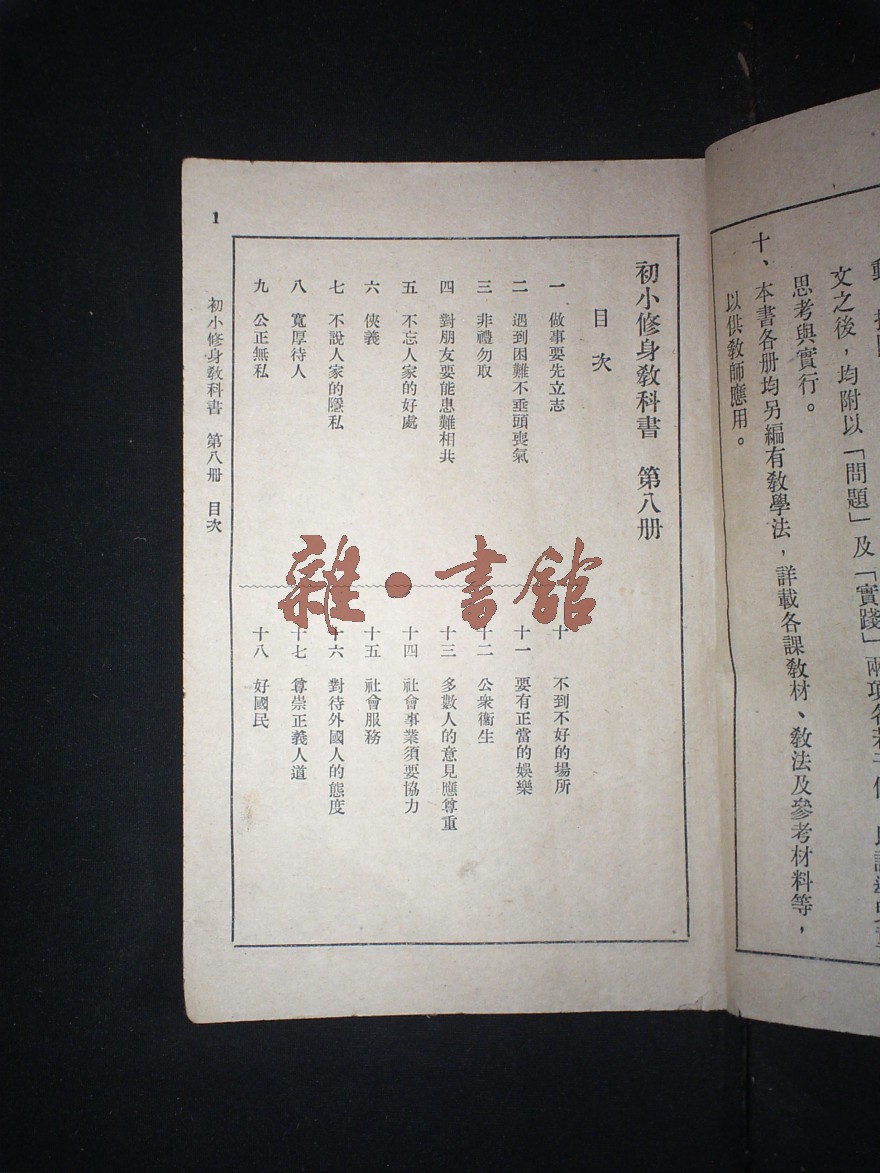 動
文之後，均附以「問題」及「實踐」兩項各若干條
思考與實行。
十、本書各册均另編有敎學法，詳載各課敎材、敎法及參考材料等，
以供敎師應用。
初小修身敎科書　第八册
目次
一　做事要先立志
二　遇到困難不垂頭喪氣
三　非禮勿取
四　對朋友要能患難相共
五　不忘人家的好處
六　俠義
七　不說人家的隱私
八　寬厚待人
九　公正無私
十　不到不好的場所
十一　要有正當的娛樂
十二　公衆衞生
十三　多數人的意見應尊重
十四　社會事業須要協力
十五　社會服務
十六　對待外國人的態度
十七　尊崇正義人道
十八　好國民
初小修身敎科書　第八册　目次
1
雜·書館